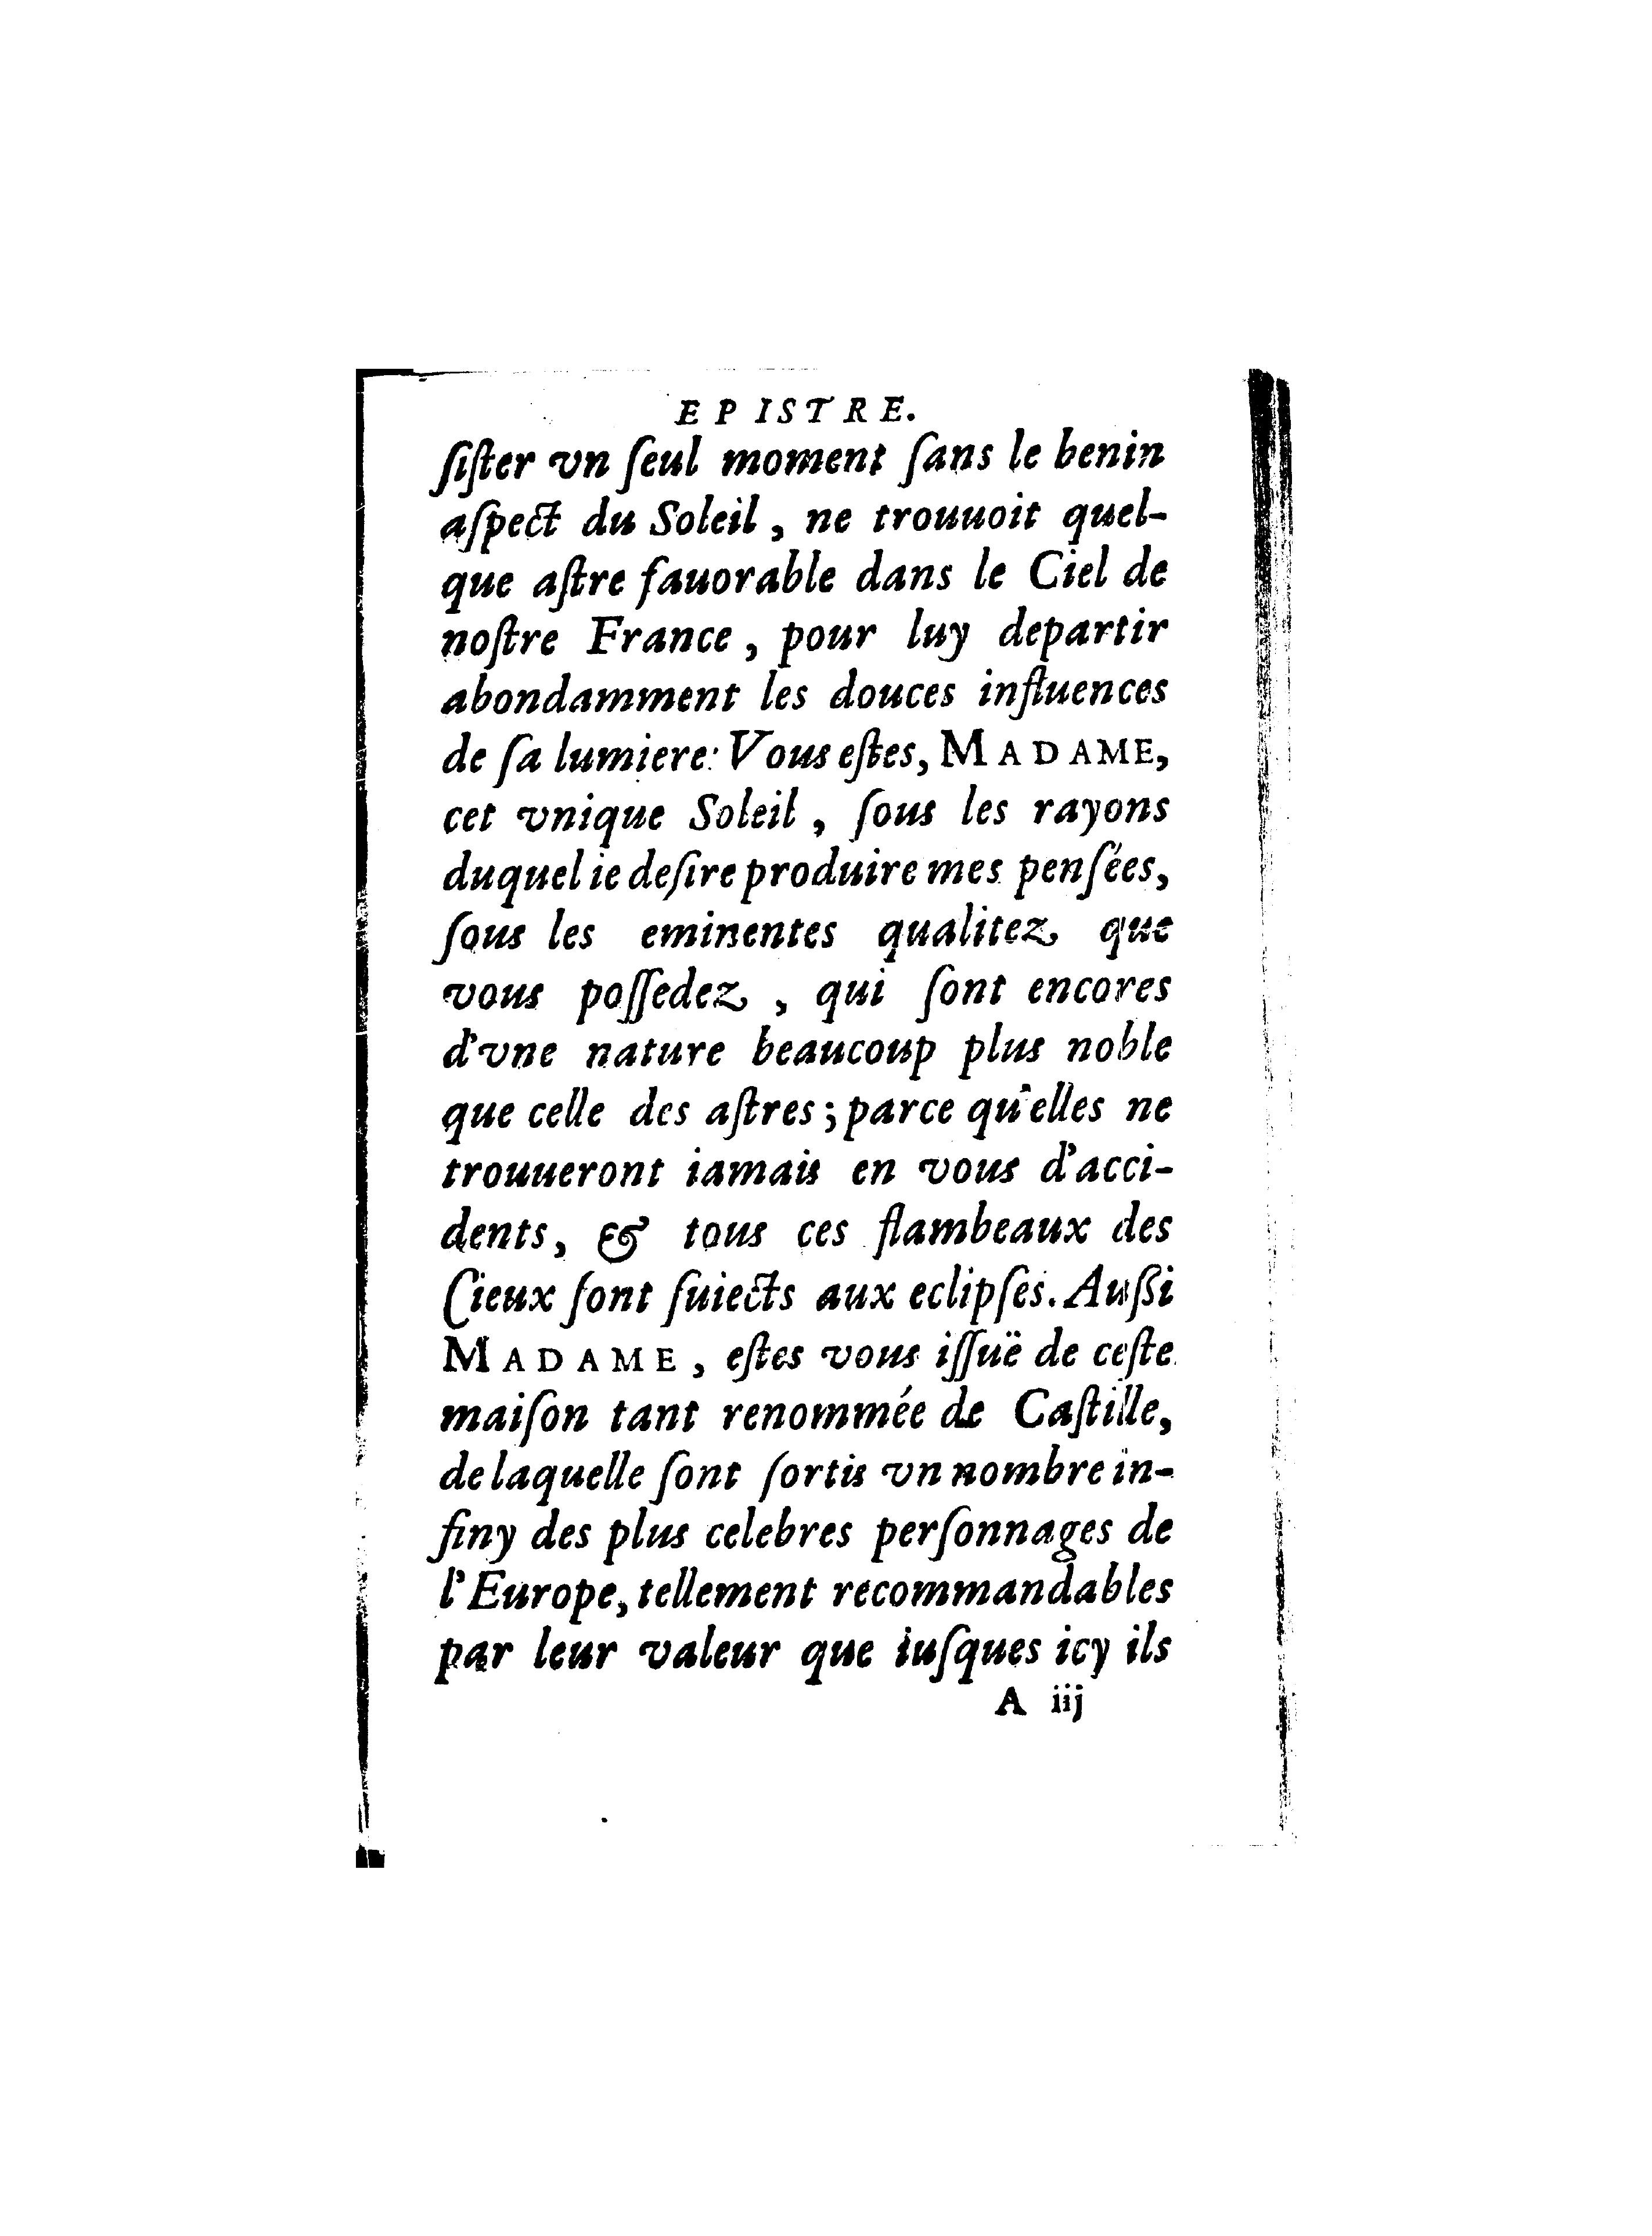 EPISTRE.
ſiſter vn ſeul moment ſans le benin
aſpect du Soleil, ne trouuoit quel-
que aſtre fauorable dans le Ciel de
noſtre France, pour luy departir
abondamment les douces influences
de ſa lumiere: Vous eſtes, MADAME,
cet vnique Soleil, ſous les rayons
duquel ie deſire produire mes penſées,
ſous les eminentes qualitez que
vous poſſedez, qui ſont encores
d'vne nature beaucoup plus noble
que celle des aſtres; parce qu'elles ne
trouueront iamais en vous d'acci-
dents, & tous ces flambeaux des
Cieux ſont ſuiects aux eclipſes. Auſſi
MADAME, eſtes vous iſſuë de ceſte
maiſon tant renommée de Caſtille,
de laquelle ſont ſortis vn nombre in-
finy des plus celebres perſonnages de
l'Europe, tellement recommandables
par leur valeur que iuſques icy ils
A iij